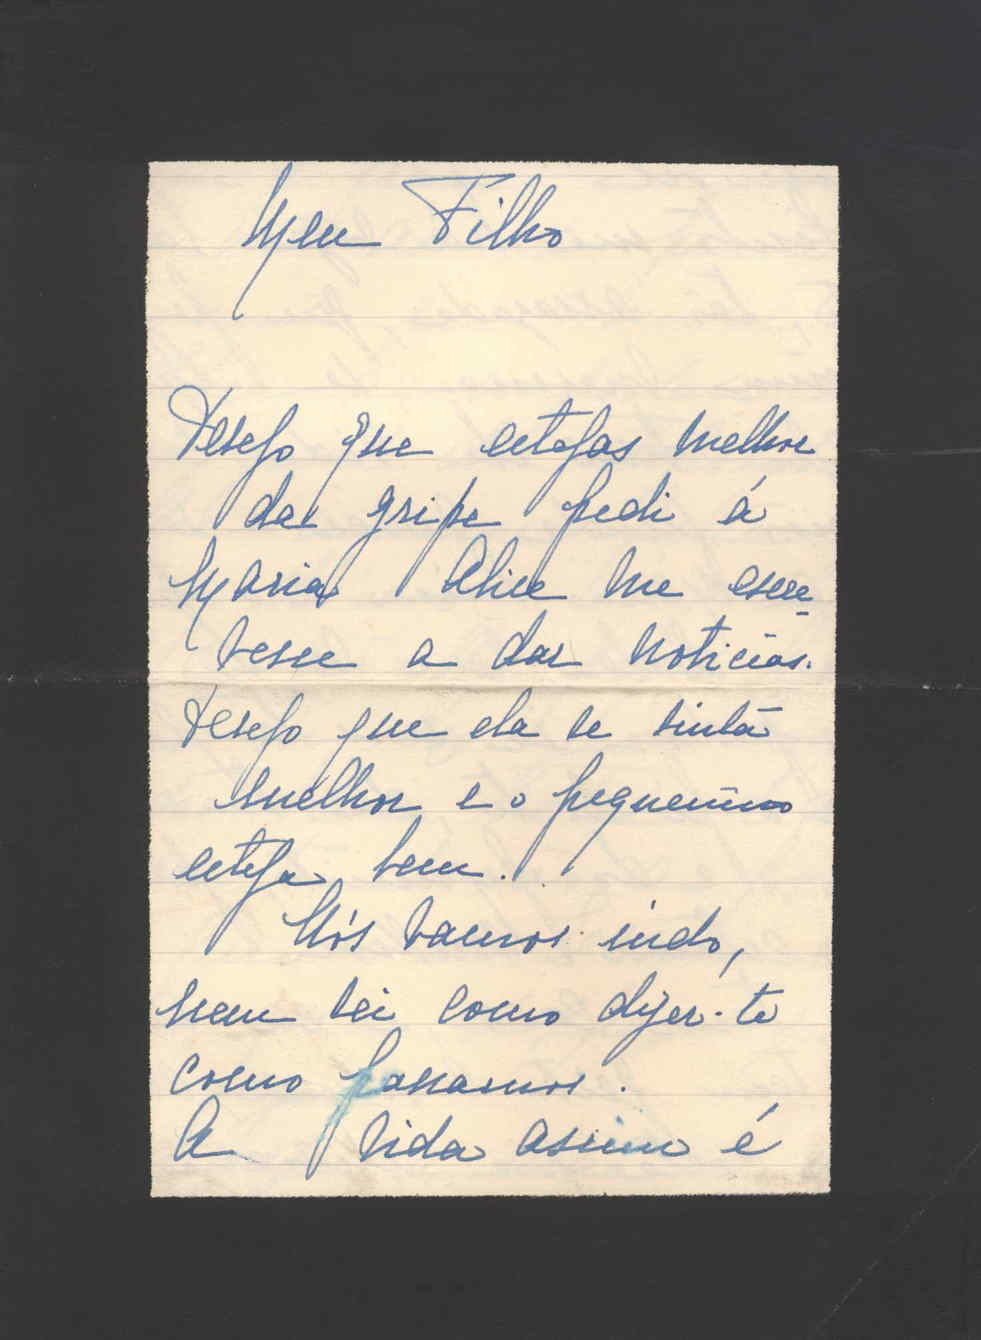 Meu Filho
Desejo que estejas melhor
da gripe pedi á
Maria Alice me escre-
vesse a dar noticias.
Desejo que ela se sinta
melhor e o pequenino
esteja bem.
Nós vamos indo,
nem sei como dizer-te
como passamos.
A vida assim é